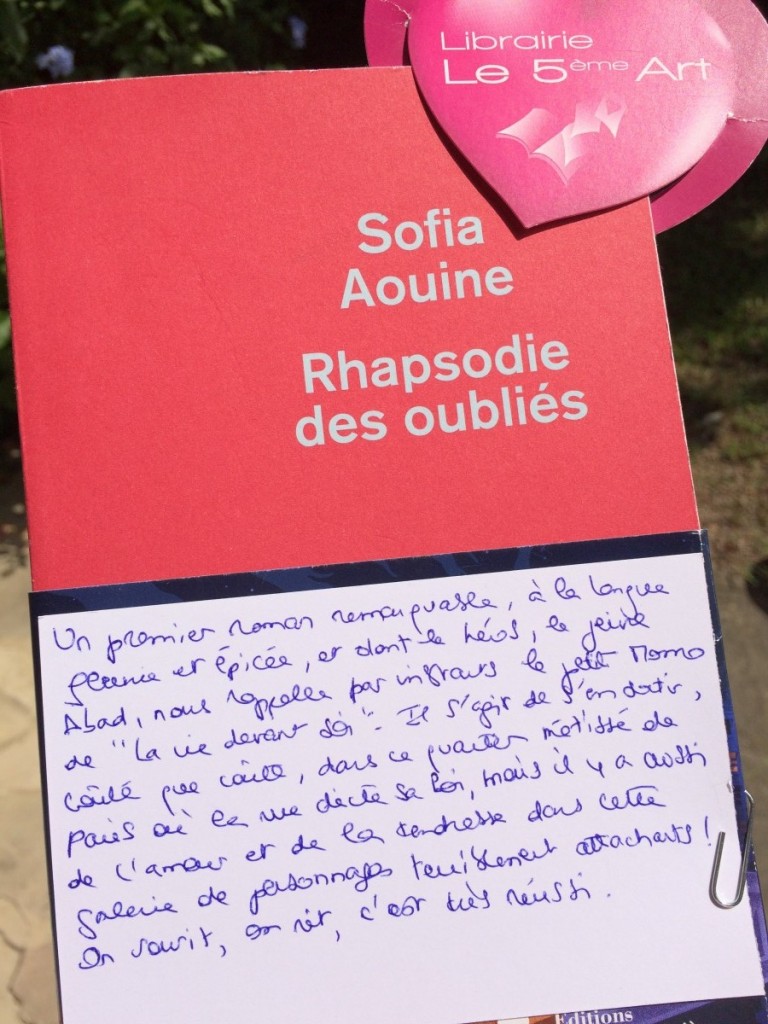 Librairie
Le 5ème Art
Sofia
Aouine
Rhapsodie
des oubliés
Un premier roman remarquable, à la langue
et épicée, et dont le héros, le jeune
Abad, nous rappelle par instants le petit Momo
de "La vie devant soi". Il s'agit de s'en sortir,
coûte que coûte, dans ce quartier métissé de
Paris où la rue dicte sa loi, mais il y a aussi
de l'amour et de la tendresse dans cette
galerie de personnages terriblement attachants !
On sourit, on rit, c'est très réussi.
Editions